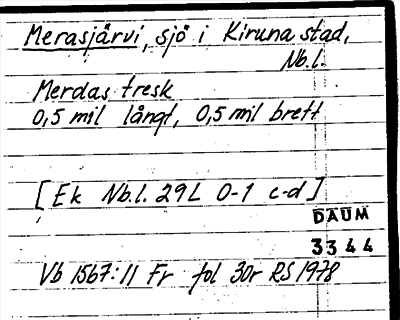 Merasjärvi, sjö i Kiruna stad,
Nb.l.
Merdas tresk
0,5 mil långt, 0,5 mil brett
[Ek Nb.l. 29L 0-1 c-d]
DAUM
3344
Vb 1567:11 Fr fol 30r RS 1978